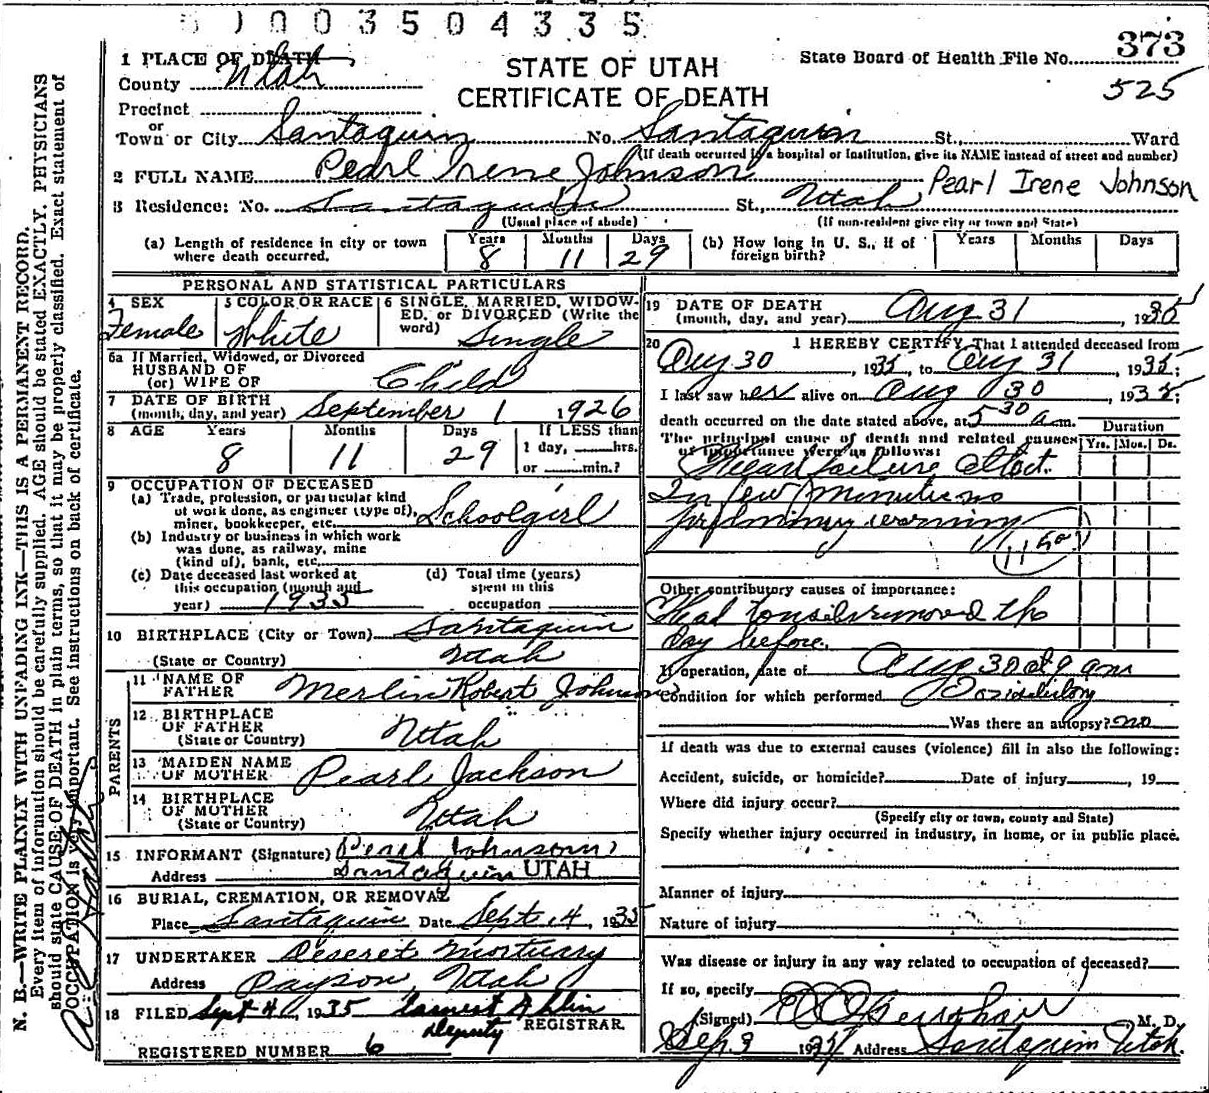 0003504335
373
State Board of Health File No.
525
1 PLACE OF DEATH
STATE OF UTAH
County Utah
CERTIFICATE OF DEATH
Precinct
or
Town or City Santaquin No. Santaquin St., Ward
(If death occurred in a hospital or institution, give its NAME instead of street and number)
2 FULL NAME Pearl Irene Johnson Pearl Irene Johnson
3 Residence: No. Santaquin St., Utah
(Usual place of abode) (If non-resident give city or town and State)
(a) Length of residence in city or town where death occurred. Years 8 Months 11 Days 29
(b) How long in U. S., if of foreign birth? Years Months Days
PERSONAL AND STATISTICAL PARTICULARS
4 SEX Female
5 COLOR OR RACE White
6 SINGLE, MARRIED, WIDOWED. or DIVORCED (Write the word) Single
6a If Married, Widowed, or Divorced
HUSBAND OF
(or) WIFE OF Child
7 DATE OF BIRTH
(month, day, and year) September 1 1926
8 AGE Years 8 Months 11 Days 29 If LESS than 1 day, hrs. or min.?
9 OCCUPATION OF DECEASED
(a) Trade, profession, or particular kind of work done, as engineer (type of), miner, bookkeeper, etc. Schoolgirl
(b) Industry or business in which work was done, as railway, mine (kind of), bank, etc.
(c) Date deceased last worked at this occupation (month and year) 1935
(d) Total time (years) spent in this occupation
10 BIRTHPLACE (City or Town) Santaquin
(State or Country) Utah
PARENTS
11 NAME OF FATHER Merlin Robert Johnson
12 BIRTHPLACE OF FATHER
(State or Country) Utah
13 MAIDEN NAME OF MOTHER Pearl Jackson
14 BIRTHPLACE OF MOTHER
(State or Country) Utah
15 INFORMANT (Signature) Pearl Johnson
Address Santaquin UTAH
16 BURIAL, CREMATION, OR REMOVAL
Place Santaquin Date Sept. 4, 1935
17 UNDERTAKER Deseret Mortuary
Address Payson, Utah
18 FILED Sept 4, 1935
Deputy REGISTRAR.
REGISTERED NUMBER 6
19 DATE OF DEATH
(month, day, and year) Aug 31, 1935
20 I HEREBY CERTIFY, That I attended deceased from
Aug 30, 1935, to Aug 31, 1935;
I last saw her alive on Aug 30, 1935;
death occurred on the date stated above, at 5 30 a m.
Duration
The principal cause of death and related causes of importance were as follows: Yrs. Mos. Ds.
Heart failure
In few minutes no
warning
Other contributory causes of importance:
Had tonsils removed the
day before.
If operation, date of Aug 30 at 9 am
Condition for which performed
Was there an autopsy? no
If death was due to external causes (violence) fill in also the following:
Accident, suicide, or homicide? Date of injury, 19
Where did injury occur?
(Specify city or town, county and State)
Specify whether injury occurred in industry, in home, or in public place.
Manner of injury
Nature of injury
Was disease or injury in any way related to occupation of deceased?
If so, specify
(Signed) M. D.
Sep. 3 19 Address Santaquin Utah.
N. B.—WRITE PLAINLY WITH UNFADING INK—THIS IS A PERMANENT RECORD.
Every item of information should be carefully supplied. AGE should be stated EXACTLY. PHYSICIANS
should state CAUSE OF DEATH in plain terms, so that it may be properly classified. Exact statement of
OCCUPATION is very important. See instructions on back of certificate.